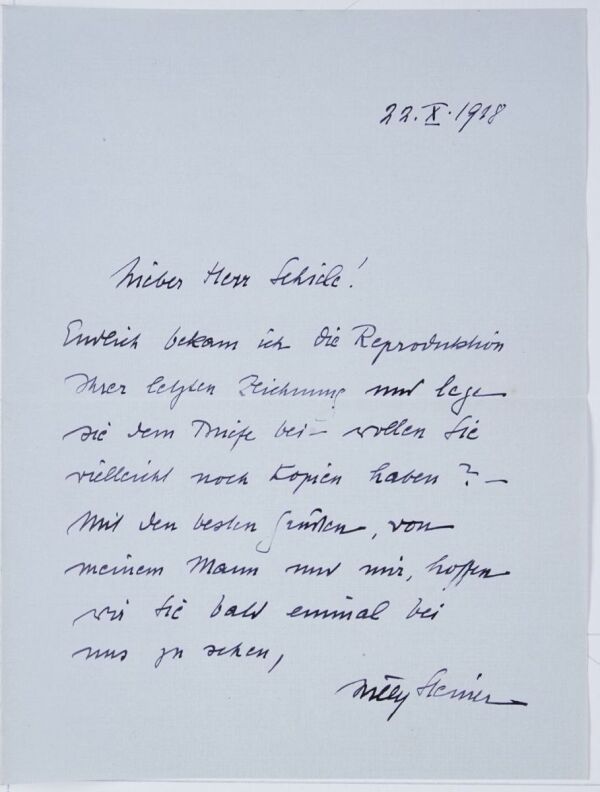 22. X. 1918
Lieber Herr Schiele!
Endlich bekam ich die Reproduktion
Ihrer letzten Zeichnung und lege
sie dem Briefe bei – wollen Sie
vielleicht noch Kopien haben? –
Mit den besten Grüßen, von
meinem Mann und mir, hoffen
wir Sie bald einmal bei
uns zu sehen,
Steiner